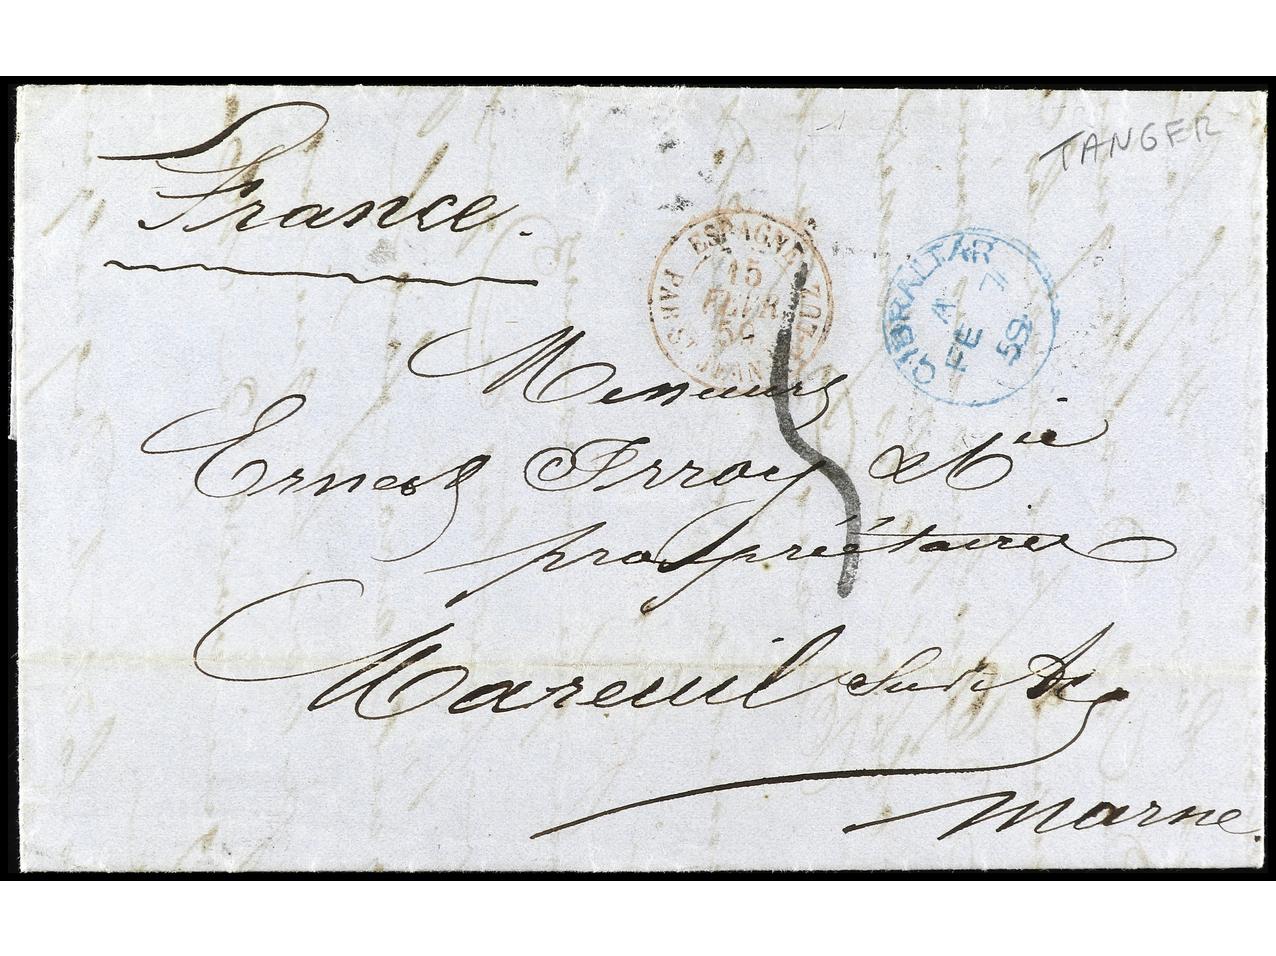 TANGER
France.
ESPAGNE
15
FEVR
59
PAR ST JEAN DE LUZ
GIBRALTAR
A
FE 7
59
Messieurs
Ernest Irroy & Cie
propriétaires
Mareuil sur Ay
Marne.